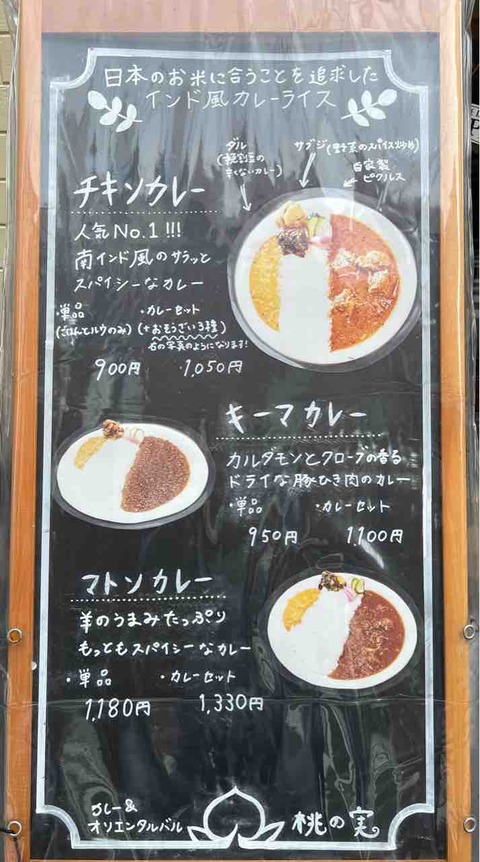 日本のお米に合うことを追求した
インド風カレーライス
ダル
(挽割豆の
辛くないカレー)
サブジ(野菜のスパイス炒め)
自家製
ピクルス
チキンカレー
人気No.1!!!
南インド風のサラッと
スパイシーなカレー
・単品
(ごはんとルウのみ)
・カレーセット
(+おそうざい3種)
右の写真のようになります!
900円
1,050円
キーマカレー
カルダモンとクローブの香る
ドライな豚ひき肉のカレー
・単品
・カレーセット
950円
1,100円
マトンカレー
羊のうまみたっぷり
もっともスパイシーなカレー
・単品
・カレーセット
1,180円
1,330円
カレー&
オリエンタルバル
桃の実